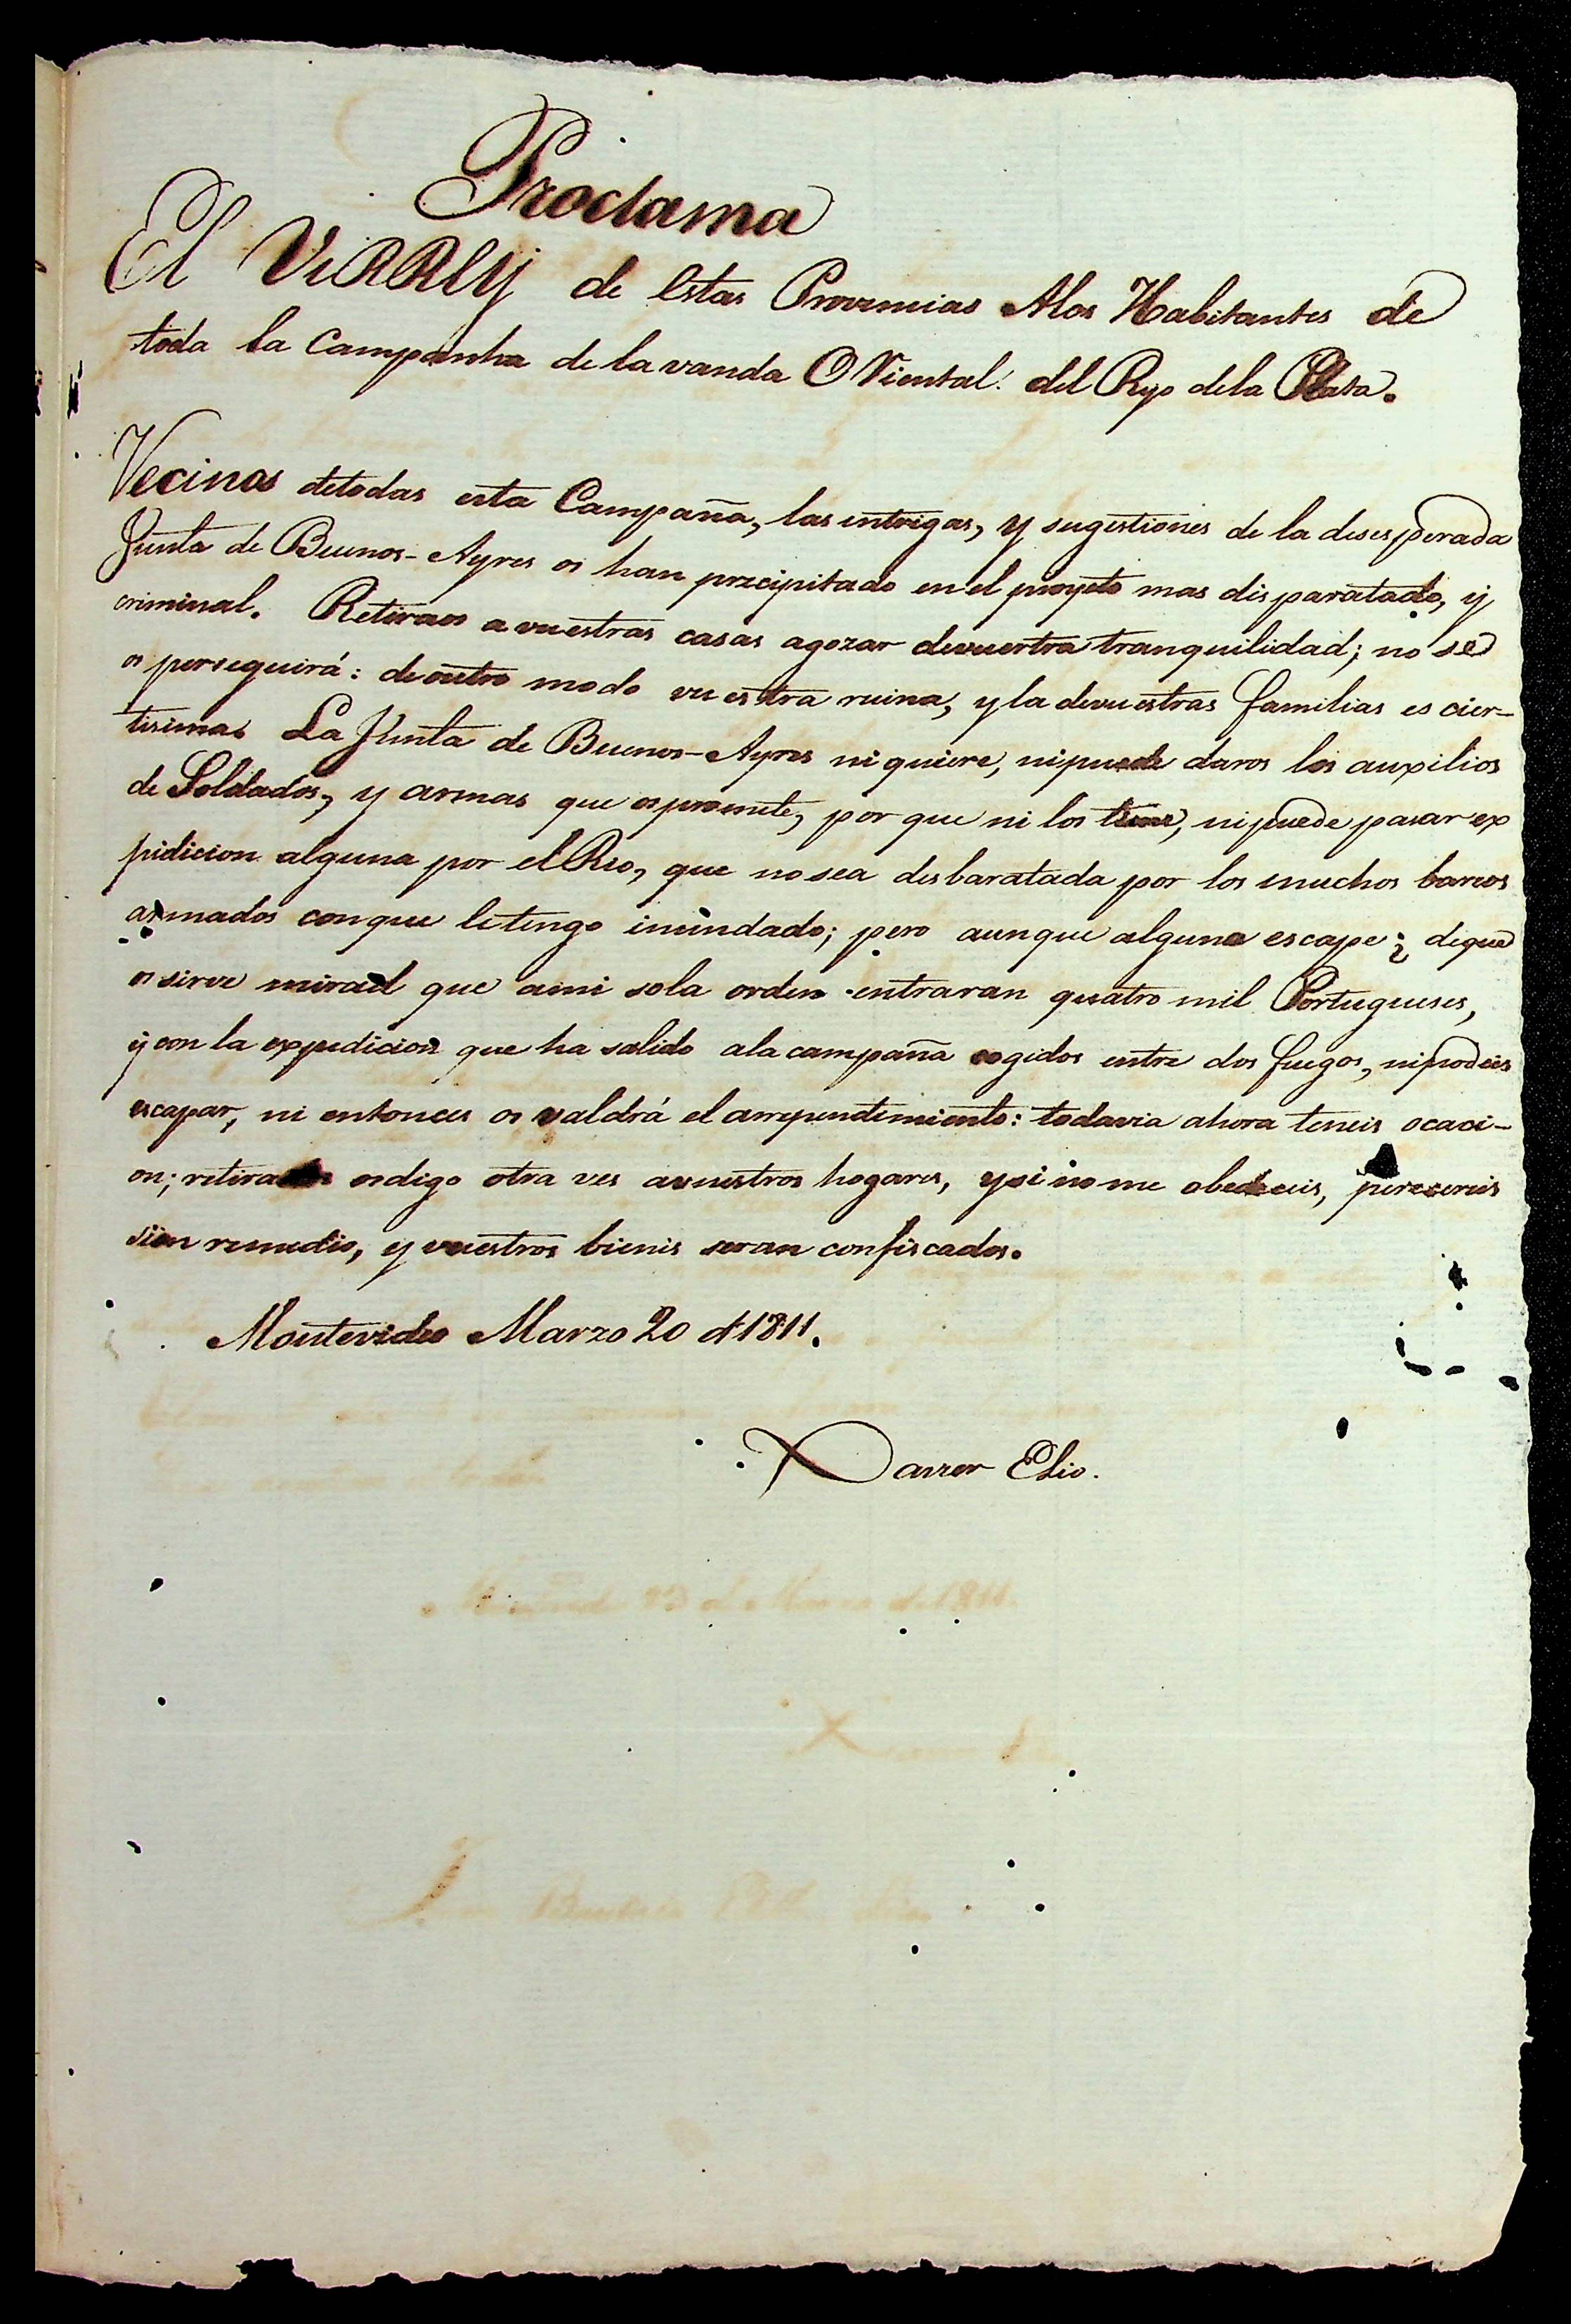 Proclama
El ViRRey de estas Provincias Alos Habitantes de
toda la Campanha de la vanda ORiental del Ryo dela Plata.
Vecinos detodas esta Campaña, las intrigas, y sugestiones de la desesperada
Junta de Buenos-Ayres os han precipitado enel proyeto mas disparatado, y
criminal. Retiraos a vuestras casas agozar devuestra tranquilidad; no se
os perseguirá: deoutro modo vuestra ruina, y la devuestras familias es cier-
tisima. La Junta de Buenos-Ayres ni quiere, nipuede daros los auxilios
de Soldados, y armas que ospromete, por que ni los tiene, nipuede pasar ex
pidicion alguna por el Rio, que nosea desbaratada por los muchos barcos
armados conque letengo inundado; pero aunque alguna escape ¿ deque
os sirve mirad que ami sola orden entraran quatro mil Portugueses,
y con la expedicion que ha salido ala campaña cogidos entre dos fuegos, nipodeis
escapar, ni entonces os valdrá el arrependimiento: todavia ahora teneis ocaci-
on; retiraos osdigo otra ves avuestros hogares, ysi no me obedeceis, perecereis
sien remedio, y vuestros bienis seran confiscados.
Montevideo Marzo 20 d 1811.
Xavier Elio.
23 de Marzo de 1811.